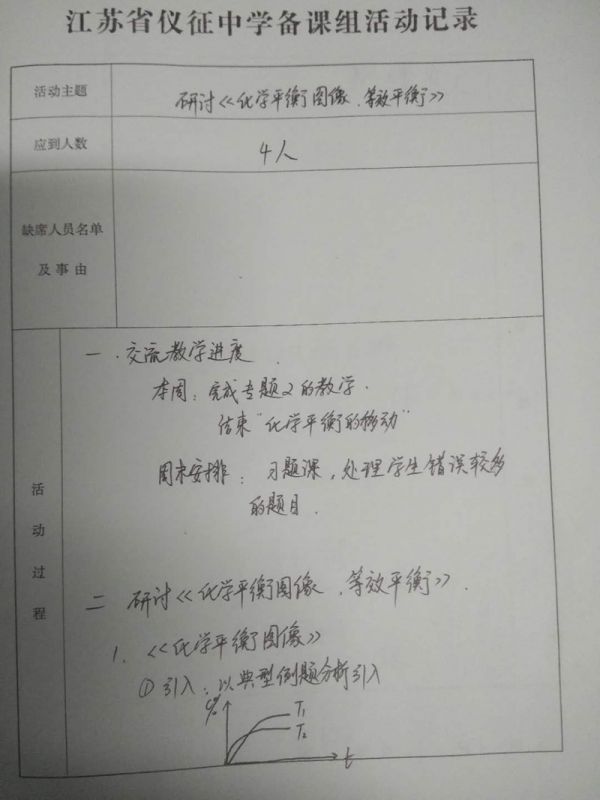 江苏省仪征中学备课组活动记录
活动主题
研讨《化学平衡图像、等效平衡》
应到人数
4人
缺席人员名单
及事由
活动过程
一、交流教学进度
本周：完成专题2的教学.
结束"化学平衡的移动"
周末安排：习题课，处理学生错误较多
的题目.
二 研讨《化学平衡图像、等效平衡》.
1. 《化学平衡图像》
① 引入：以典型例题分析引入
T₁
T₂
t